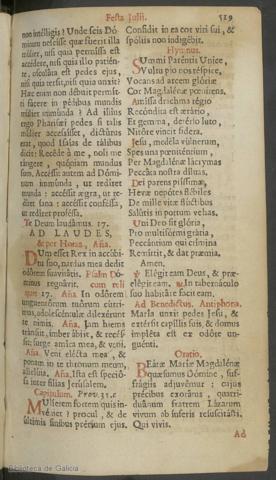 Festa Julii. 519
non intelligis? Unde scis Dó-
minum nescire quæ fuerit illa
múlier, nisi quia permísit eam
accédere, nisi quia illo patién-
te, osculáta est pedes ejus,
nisi quia tersit, nisi quia unxit?
Hæc enim non débuit permít-
ti fácere in pédibus mundis
múlier immúnda? Ad illíus
ergo Pharisæi pedes si talis
múlier accessísset, dictúrus
erat, quod Isaías de tálibus
dicit: Recéde à me, noli me
tángere, quóniam mundus
sum. Accéssit autem ad Dómi-
num immúnda, ut redíret
munda: accéssit ægra, ut re-
díret sana: accéssit conféssa,
ut redíret proféssa.
Te Deum laudámus. 17.
AD LAUDES,
& per Horas, Aña.
DUm esset Rex in accúbi-
tu suo, nardus mea dedit
odórem suavitátis. Psalm Dó-
minus regnávit. cum reli-
quis 17. Aña In odórem
unguentórum tuórum cúrri-
mus, adolescéntulæ dilexérunt
te nimis. Aña. Jam hiems
tránsiit, imber ábiit, & recéssit:
surge amíca mea, & veni.
Aña. Veni elécta mea, &
ponam in te thronum meum,
allelúja. Aña. Ista est speció-
sa inter fílias Jerúsalem.
Capitulum. Prov. 31. c
MUlíerem fortem quis in-
véniet? procul, & de
últimis fínibus prétium ejus.
Confídit in ea cor viri sui, &
spóliis non indigébit.
Hymnus.
SUmmi Paréntis Unice,
Vultu pio nos réspice,
Vocans ad arcem glóriæ
Cor Magdalénæ pœnitens.
Amíssa drachma régio
Recóndita est ærário,
Et gemma, detérso luto,
Nitóre vincit sídera.
Jesu, medéla vúlnerum,
Spes una pœniténtium,
Per Magdalénæ lácrymas
Peccáta nostra díluas.
Dei parens piíssima,
Hevæ nepótes flébiles
De mille vitæ flúctibus
Salútis in portum vehas.
Uni Deo sit glória,
Pro multifórmi grátia,
Peccántium qui crímina
Remíttit, & dat præmia.
Amen.
℣. Elégit eam Deus, & præ-
elégit eam. ℟. In tabernáculo
suo habitáre facit eam.
Ad Benedictus. Antiphona.
María unxit pedes Jesu, &
extérsit capíllis suis, & domus
impléta est ex odóre un-
guénti.
Oratio.
BEátæ Maríæ Magdalénæ
quæsumus Dómine, suf-
frágiis adjuvémur: cujus
précibus exorátus, quatri-
duánum fratrem Lázarum
vivum ab ínferis resuscitásti.
Qui vivis.
Ad
Biblioteca de Galicia